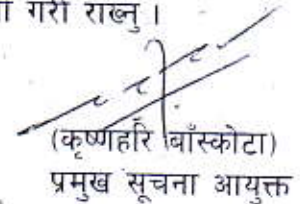 गरी राख्नु ।
(कृष्णहरि बाँस्कोटा)
प्रमुख सूचना आयुक्त